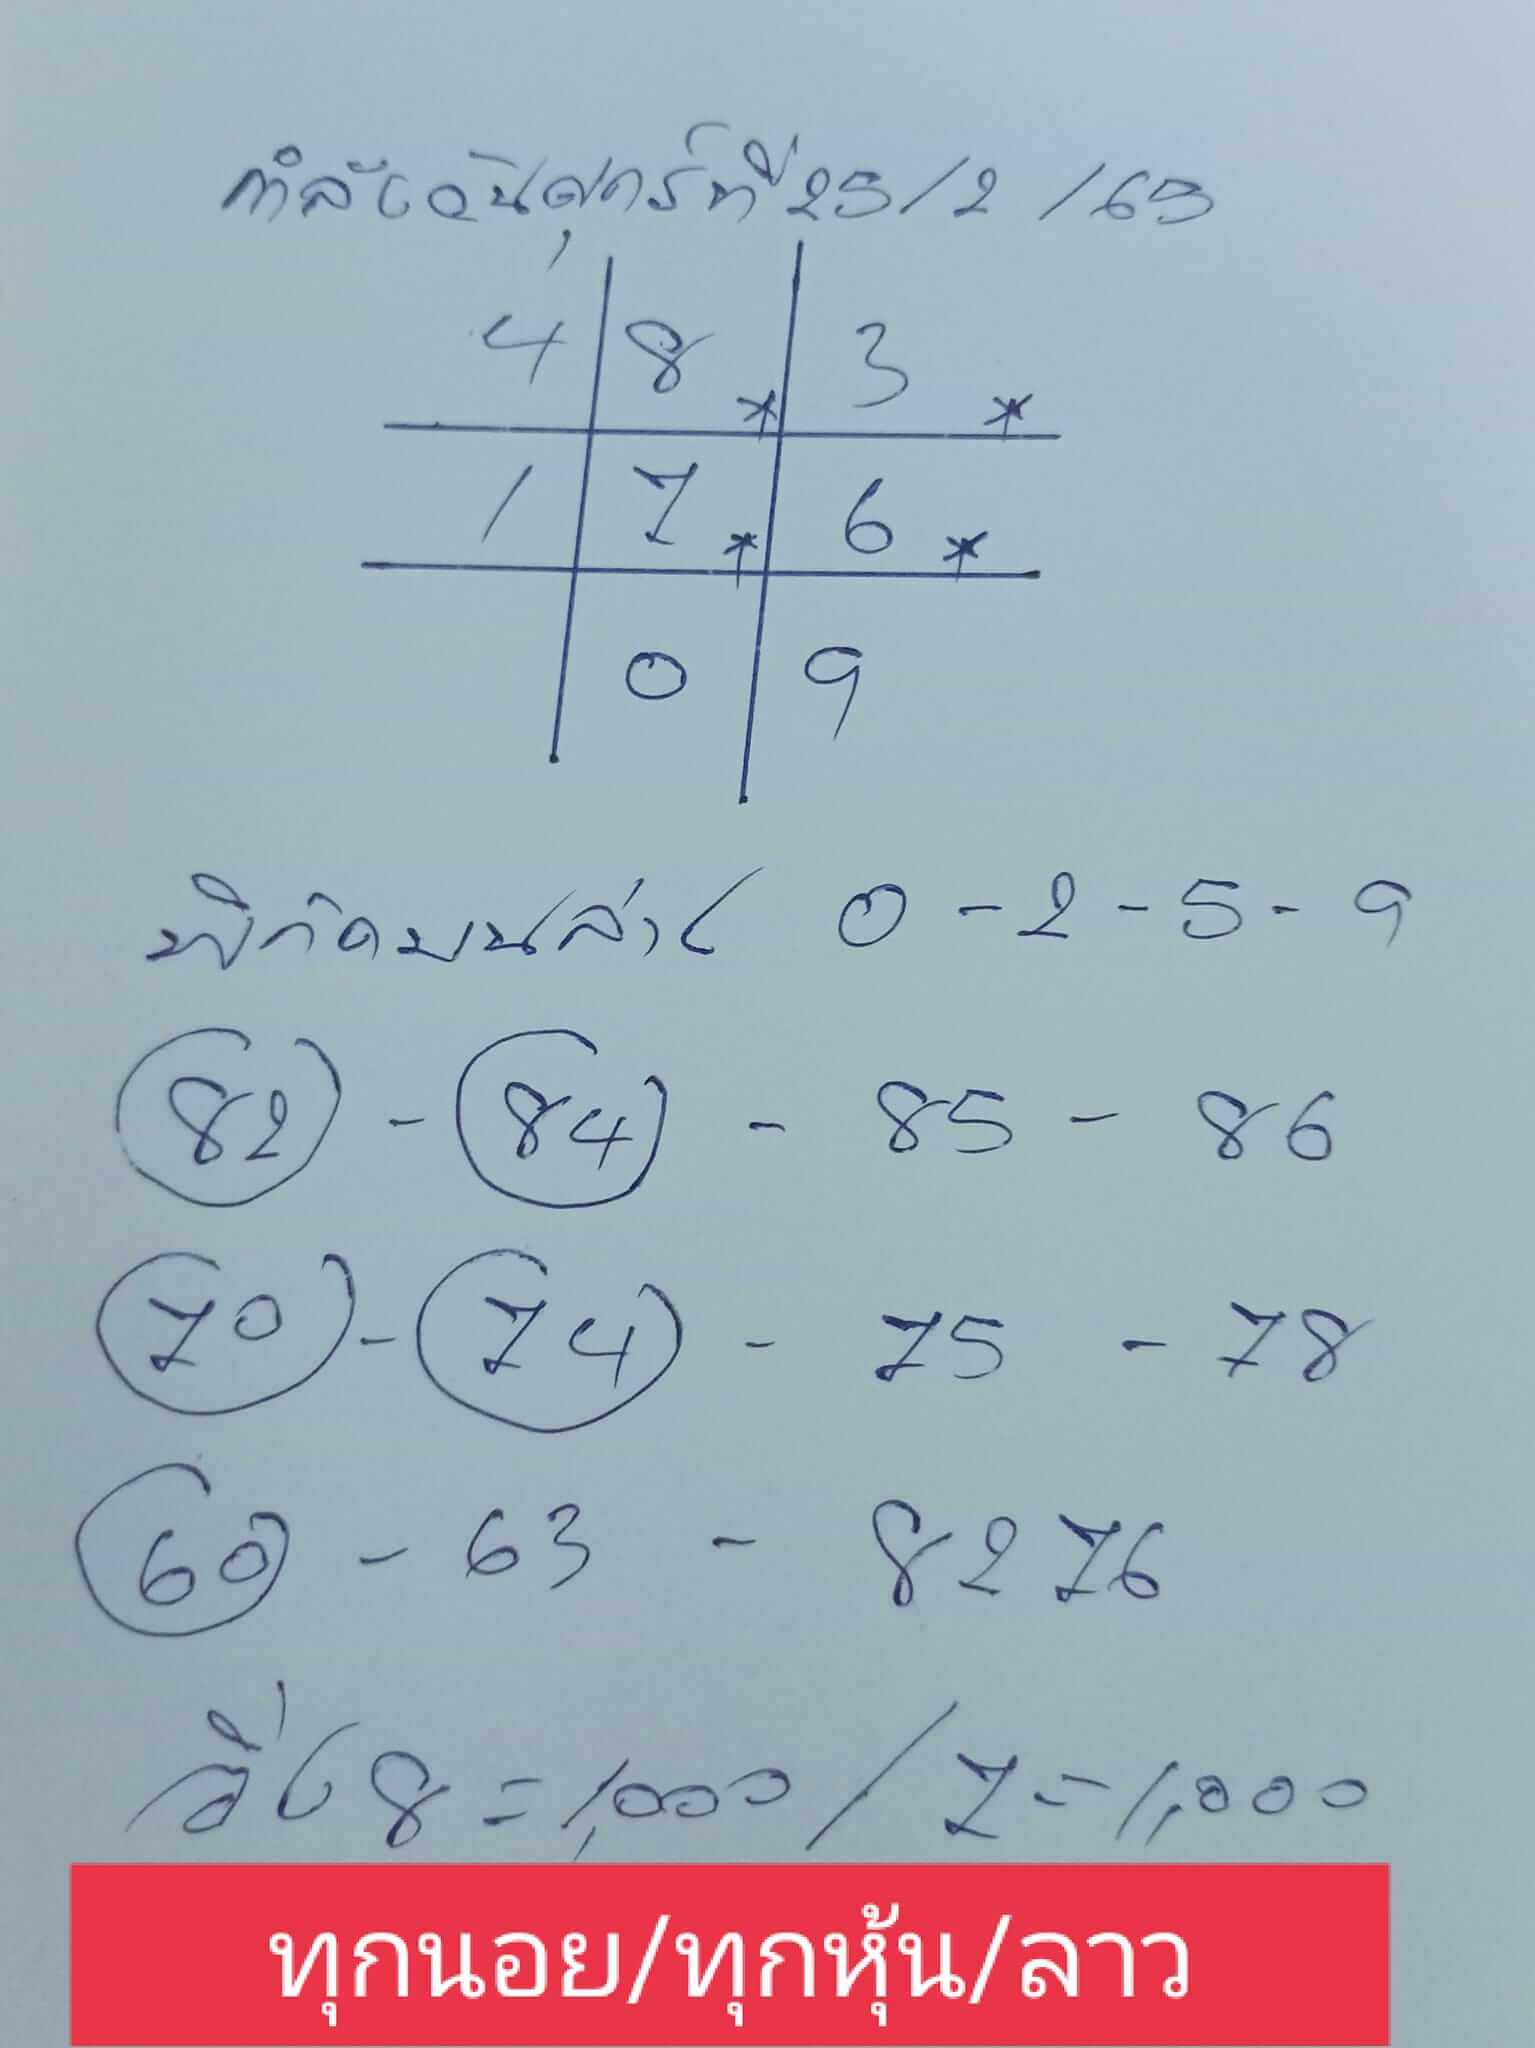 กำลังวันศุกร์ที่ 25/2/65
4 8 * 3 *
1 7 * 6 *
0 9
พิกัดบนล่าง 0-2-5-9
82 - 84 - 85 - 86
70 - 74 - 75 - 78
60 - 63 - 8276
วิ่ง 8 = 1,000 / 7 = 1,000
ทุกนอย/ทุกหุ้น/ลาว